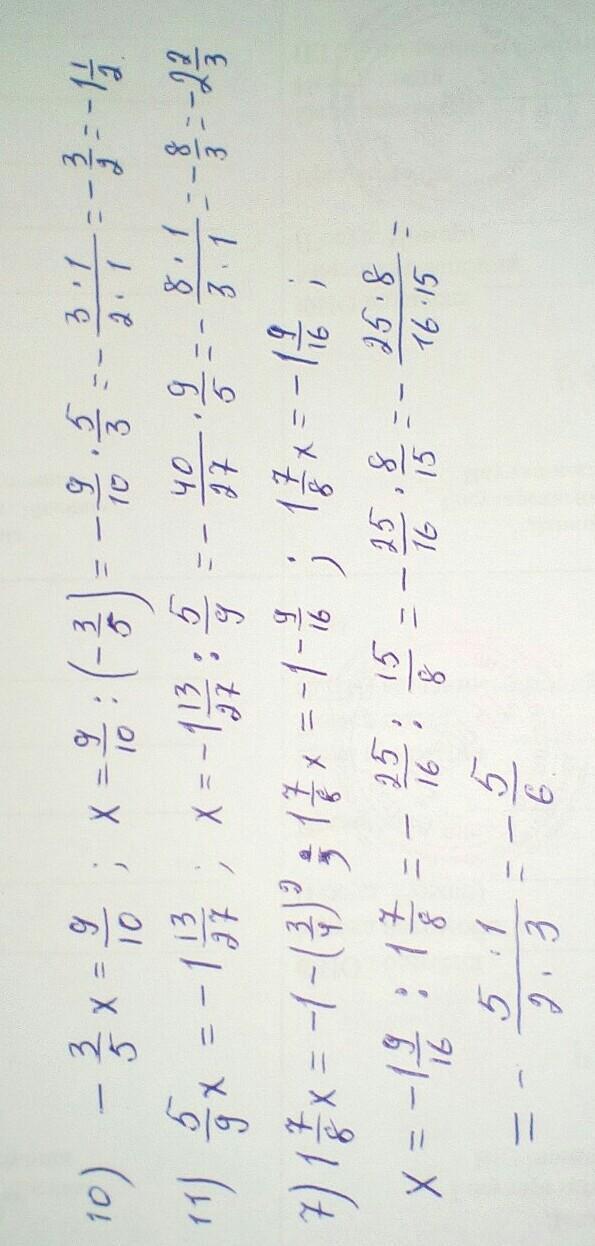 10) -3/5 x = 9/10 ; x = 9/10 : (-3/5) = -9/10 · 5/3 = - 3·1/2·1 = -3/2 = -1 1/2.
11) 5/9 x = -1 13/27 ; x = -1 13/27 : 5/9 = - 40/27 · 9/5 = - 8·1/3·1 = -8/3 = -2 2/3
7) 1 7/8 x = -1-(3/4)² ; 1 7/8 x = -1 - 9/16 ; 1 7/8 x = -1 9/16 ;
x = -1 9/16 : 1 7/8 = - 25/16 : 15/8 = - 25/16 · 8/15 = - 25·8/16·15 =
= - 5·1/2·3 = - 5/6